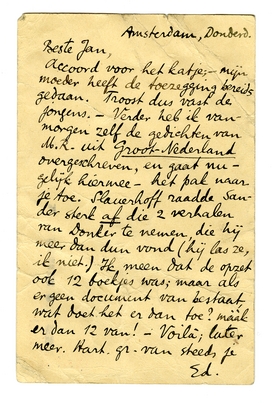 Amsterdam, Donderd.
Beste Jan,
Accoord voor het katje; – mijn
moeder heeft de toezegging bereids
gedaan. Troost dus vast de
jongens. – Verder heb ik van-
morgen zelf de gedichten van
M.K. uit Groot-Nederland
overgeschreven, en gaat nu –
gelijk hiermee – het pak naar
je toe. Slauerhoff raadde San-
der sterk af die 2 verhalen
van Donker te nemen, die hij
meer dan dun vond (hij las ze,
ik niet.) Ik meen dat de opzet
ook 12 boekjes was; maar als
er geen document van bestaat,
wat doet het er dan toe? máák
er dan 12 van! – Voilà; later
meer. Hart. gr. van steeds je
Ed.